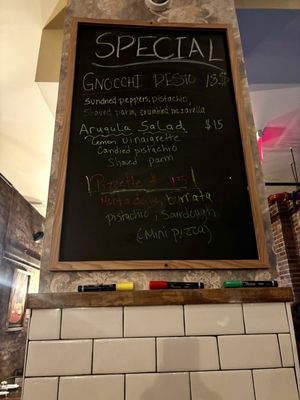 SPECIAL
GNOCCHI PESTO 15$
Sundried peppers, pistachio,
Shaved parm, crumbled mozarella
Arugula Salad $15
Lemon vinaigrette
Candied pistachio
Shaved parm
Pizzette $ 15
burrata
pistachio, Sourdough
(Mini pizza)